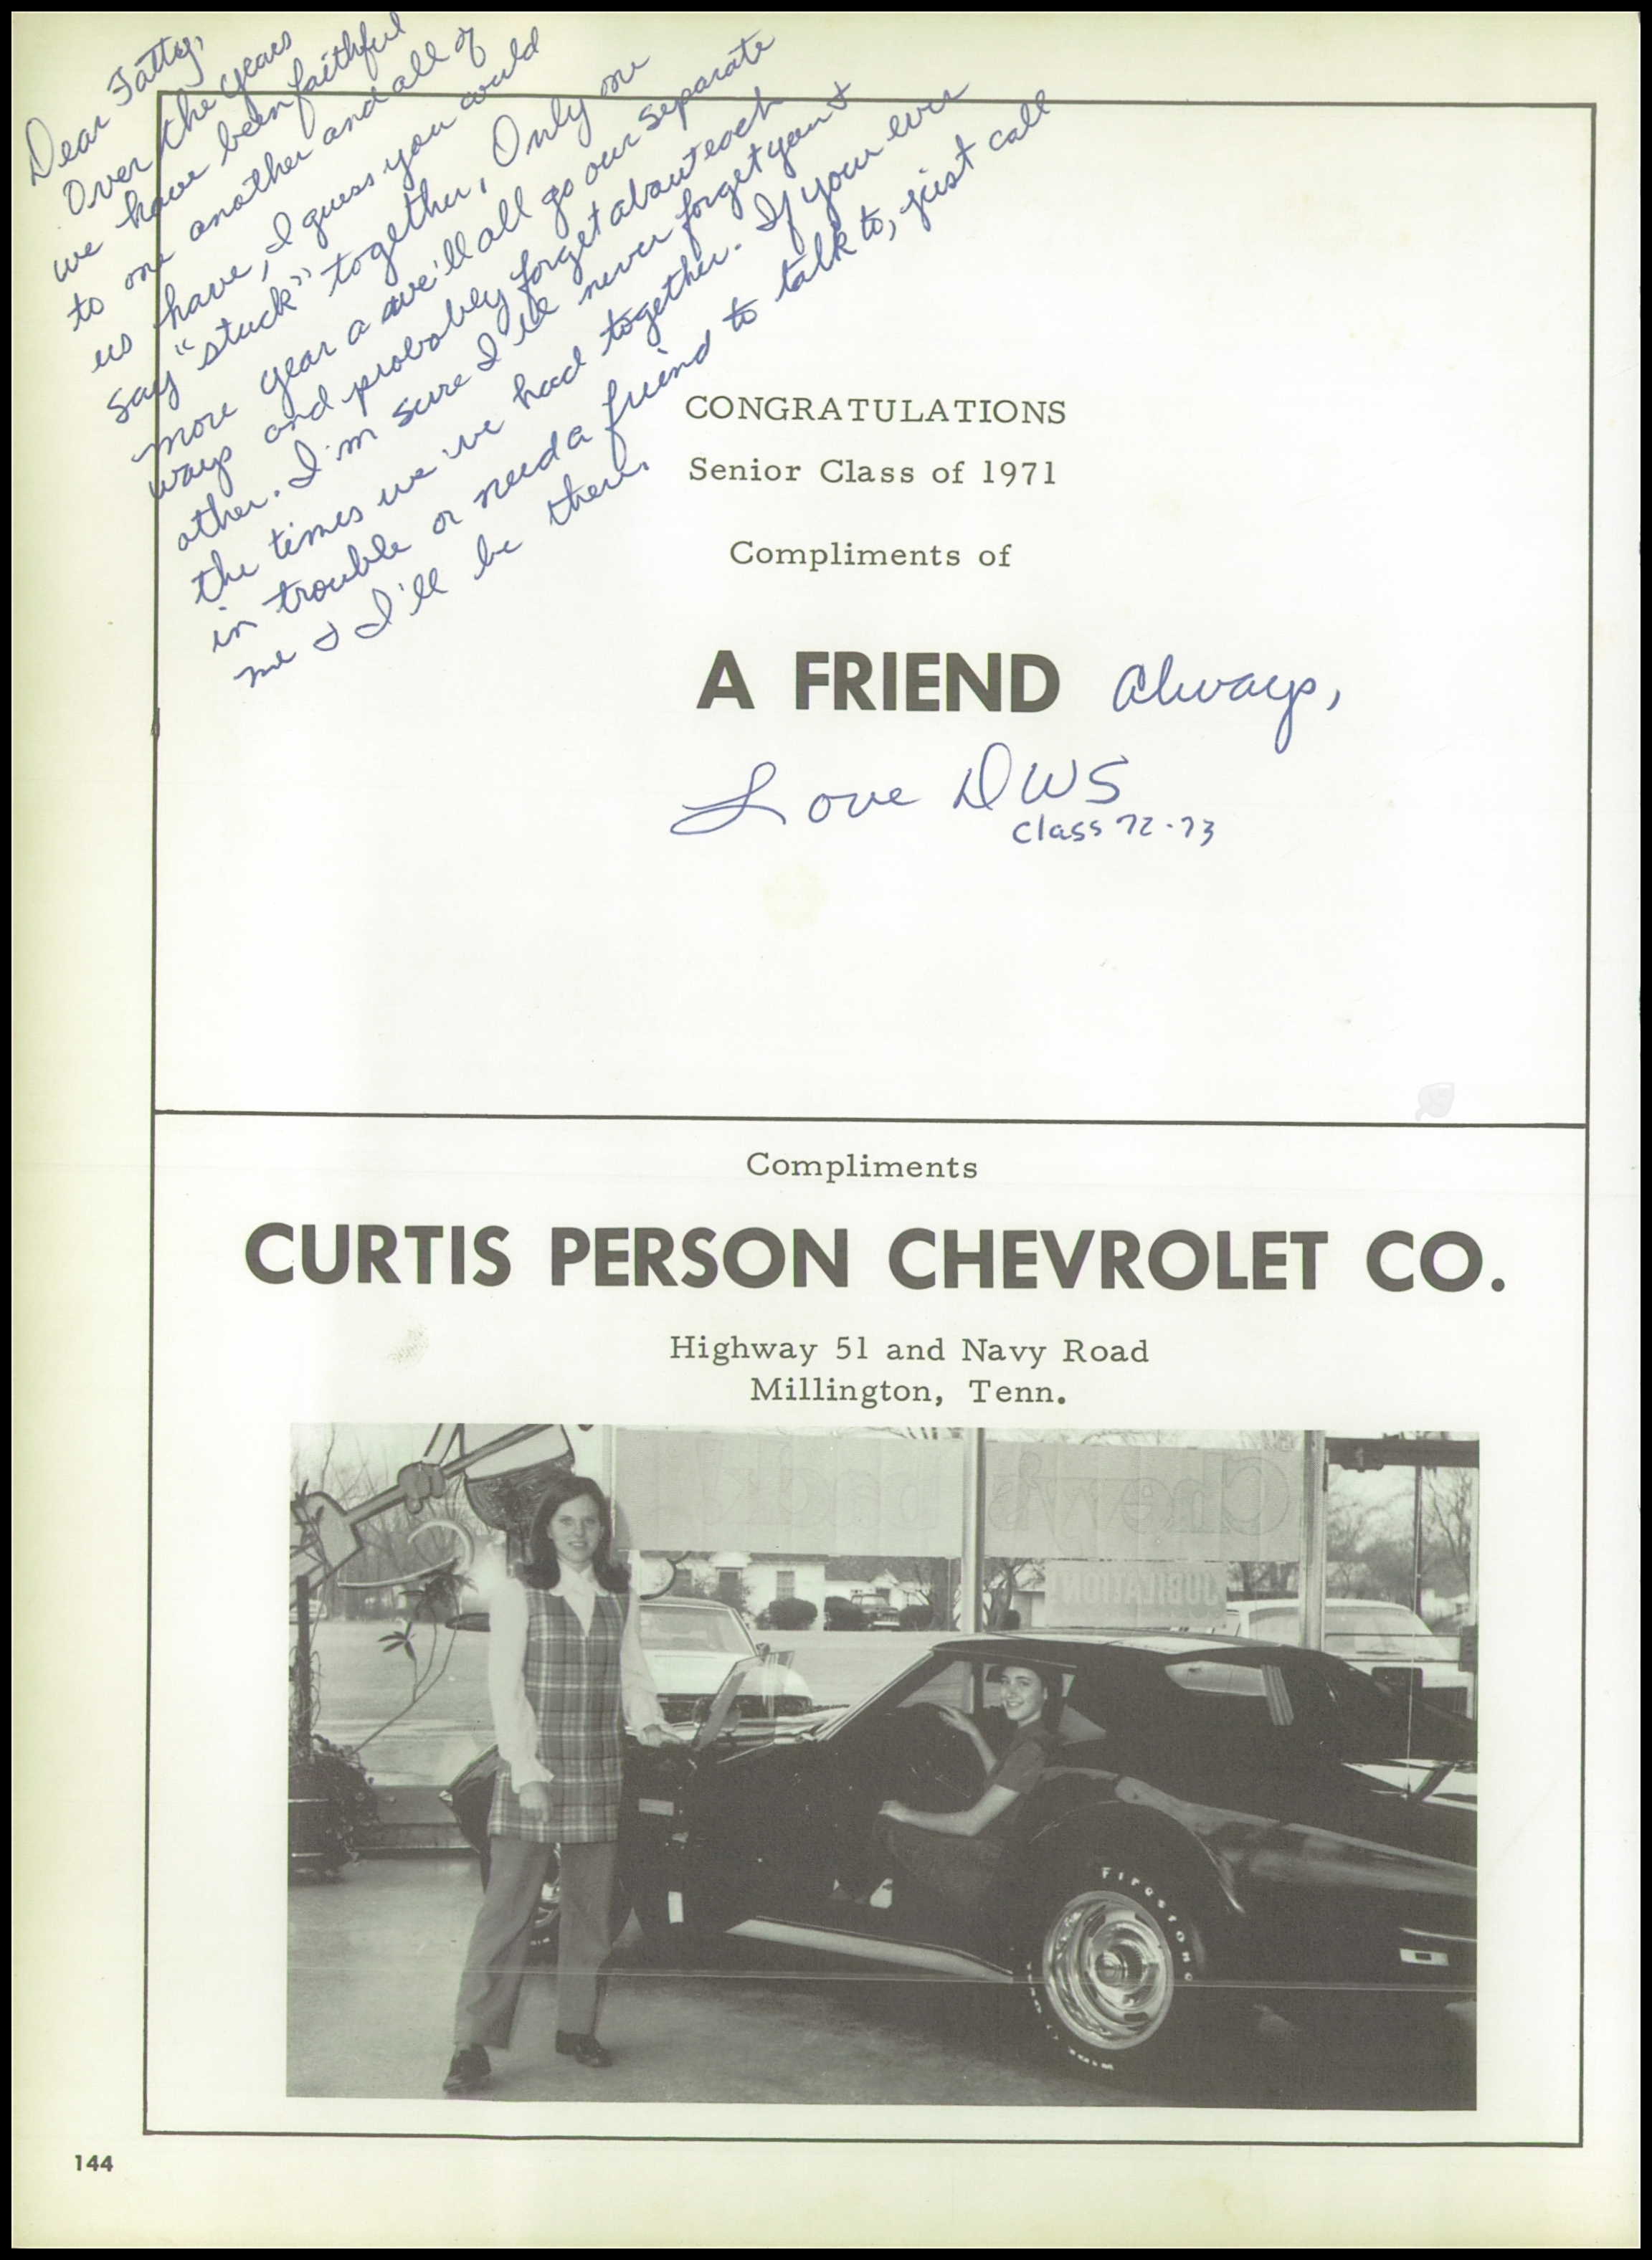 Dear Fatty,
Over the years
we have been faithful
to one another and all of
us have, I guess you could
say "stuck" together, Only one
more year a we'll all go our separate
ways and probably forget about each
other. I'm sure I'll never forget you &
the times we've had together. If your ever
in trouble or need a friend to talk to, just call
me & I'll be there.
CONGRATULATIONS
Senior Class of 1971
Compliments of
A FRIEND always,
Love DWS
Class 72-73
Compliments
CURTIS PERSON CHEVROLET CO.
Highway 51 and Navy Road
Millington, Tenn.
Chevy's back!
JUBILATION!
FIRESTONE
144